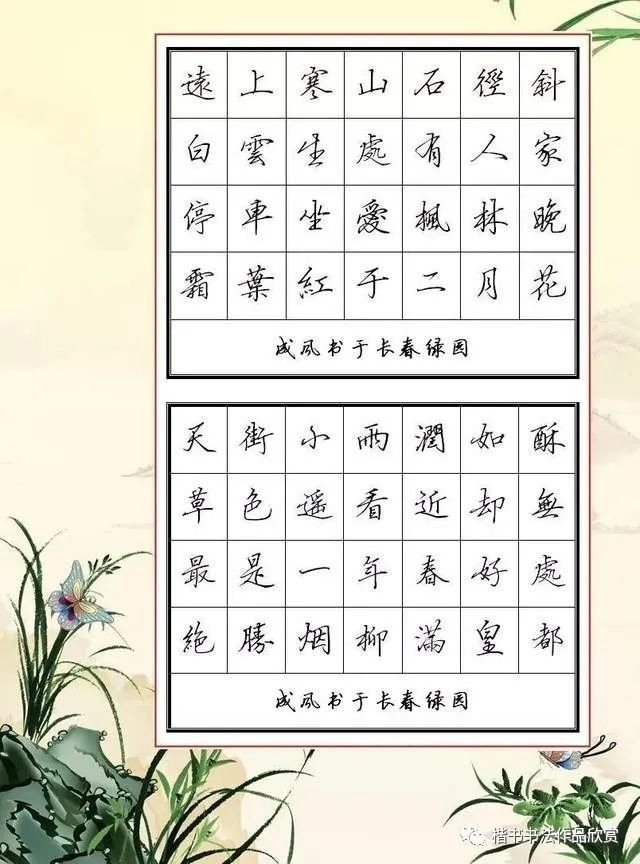 遠上寒山石徑斜
白雲生處有人家
停車坐愛楓林晚
霜葉紅于二月花
成凤书于长春绿园
天街小雨潤如酥
草色遥看近却無
最是一年春好處
絶勝烟柳滿皇都
成凤书于长春绿园
楷书书法作品欣赏